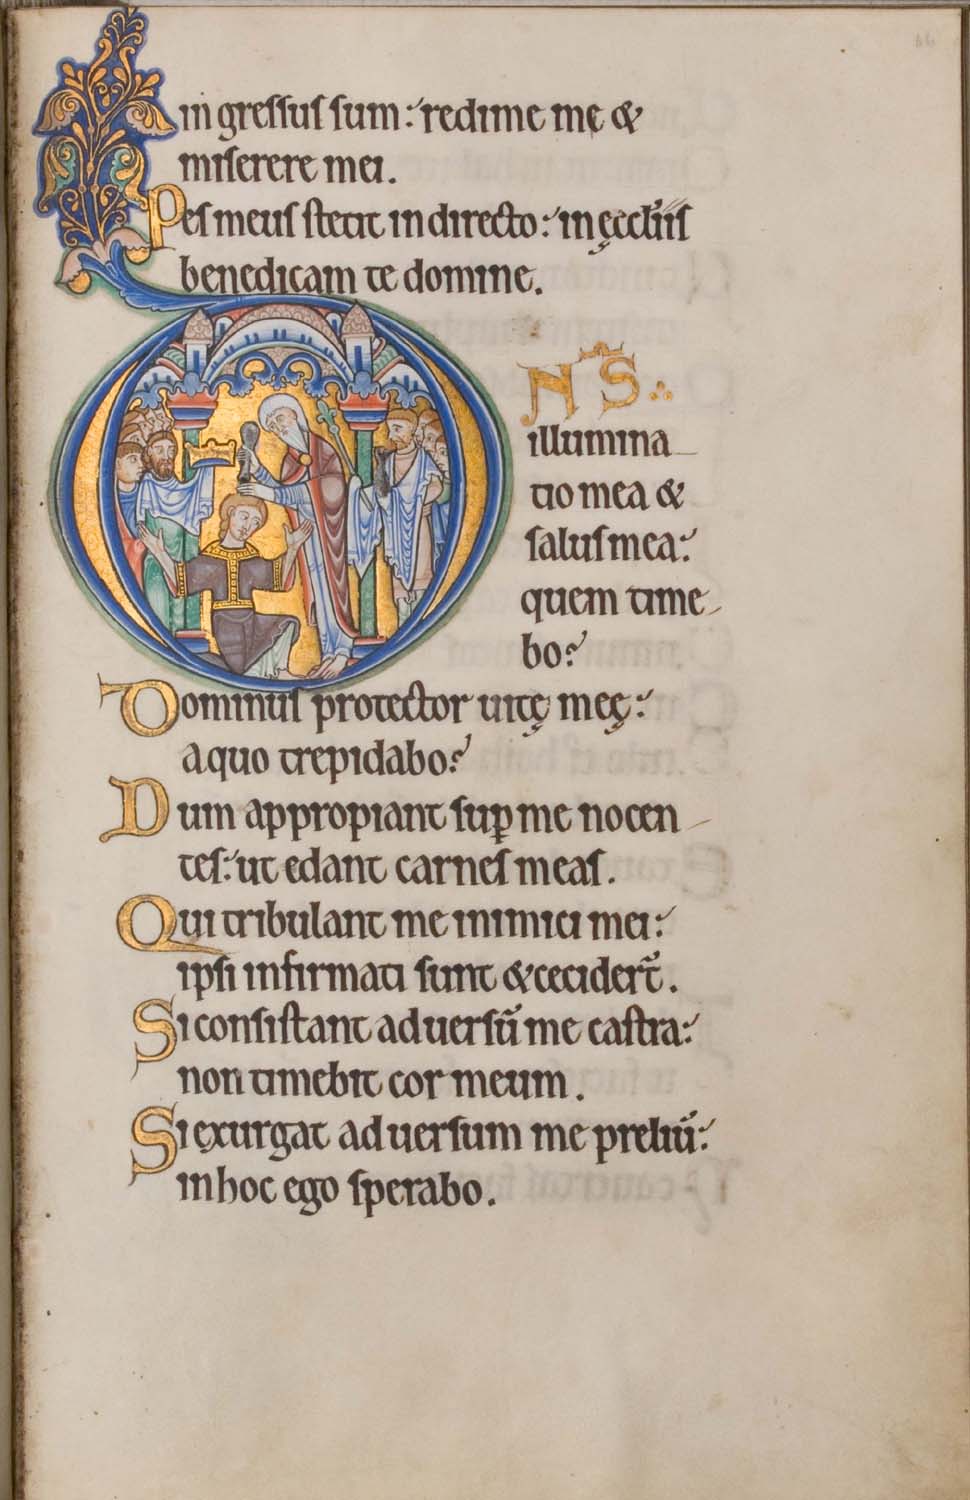 in gressus sum: redime me &
miserere mei.
Pes meus stetit in directo: in ęccl̄iis
benedicam te domine.
DN̄S
illumina
tio mea &
salus mea:
quem time
bo?
Dominus protector uitę meę:
a quo trepidabo?
Dum appropiant sup̱ me nocen
tes: ut edant carnes meas.
Qui tribulant me inimici mei:
ipsi infirmati sunt & cecider̄t.
Si consistant aduersū me castra:
non timebit cor meum.
Si exurgat aduersum me preliū:
in hoc ego sperabo.